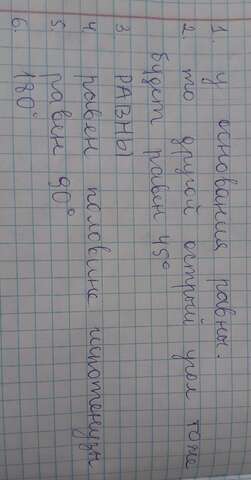 1. у основания равны.
2. то другой острый угол тоже
будет равен 45°
3. РАВНЫ
4. равен половине гипотенузы
5. равен 90°
6. 180°